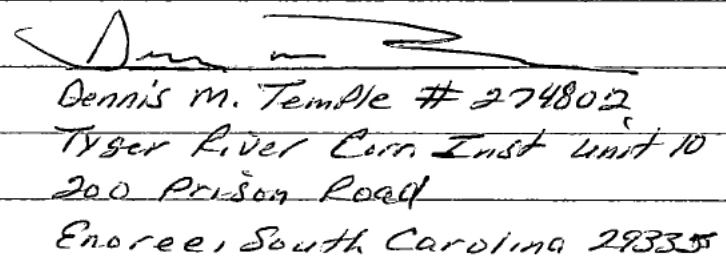 Dennis M. Temple # 274802
Tyger River Corr. Inst Unit 10
200 Prison Road
Enoree, South Carolina 29335